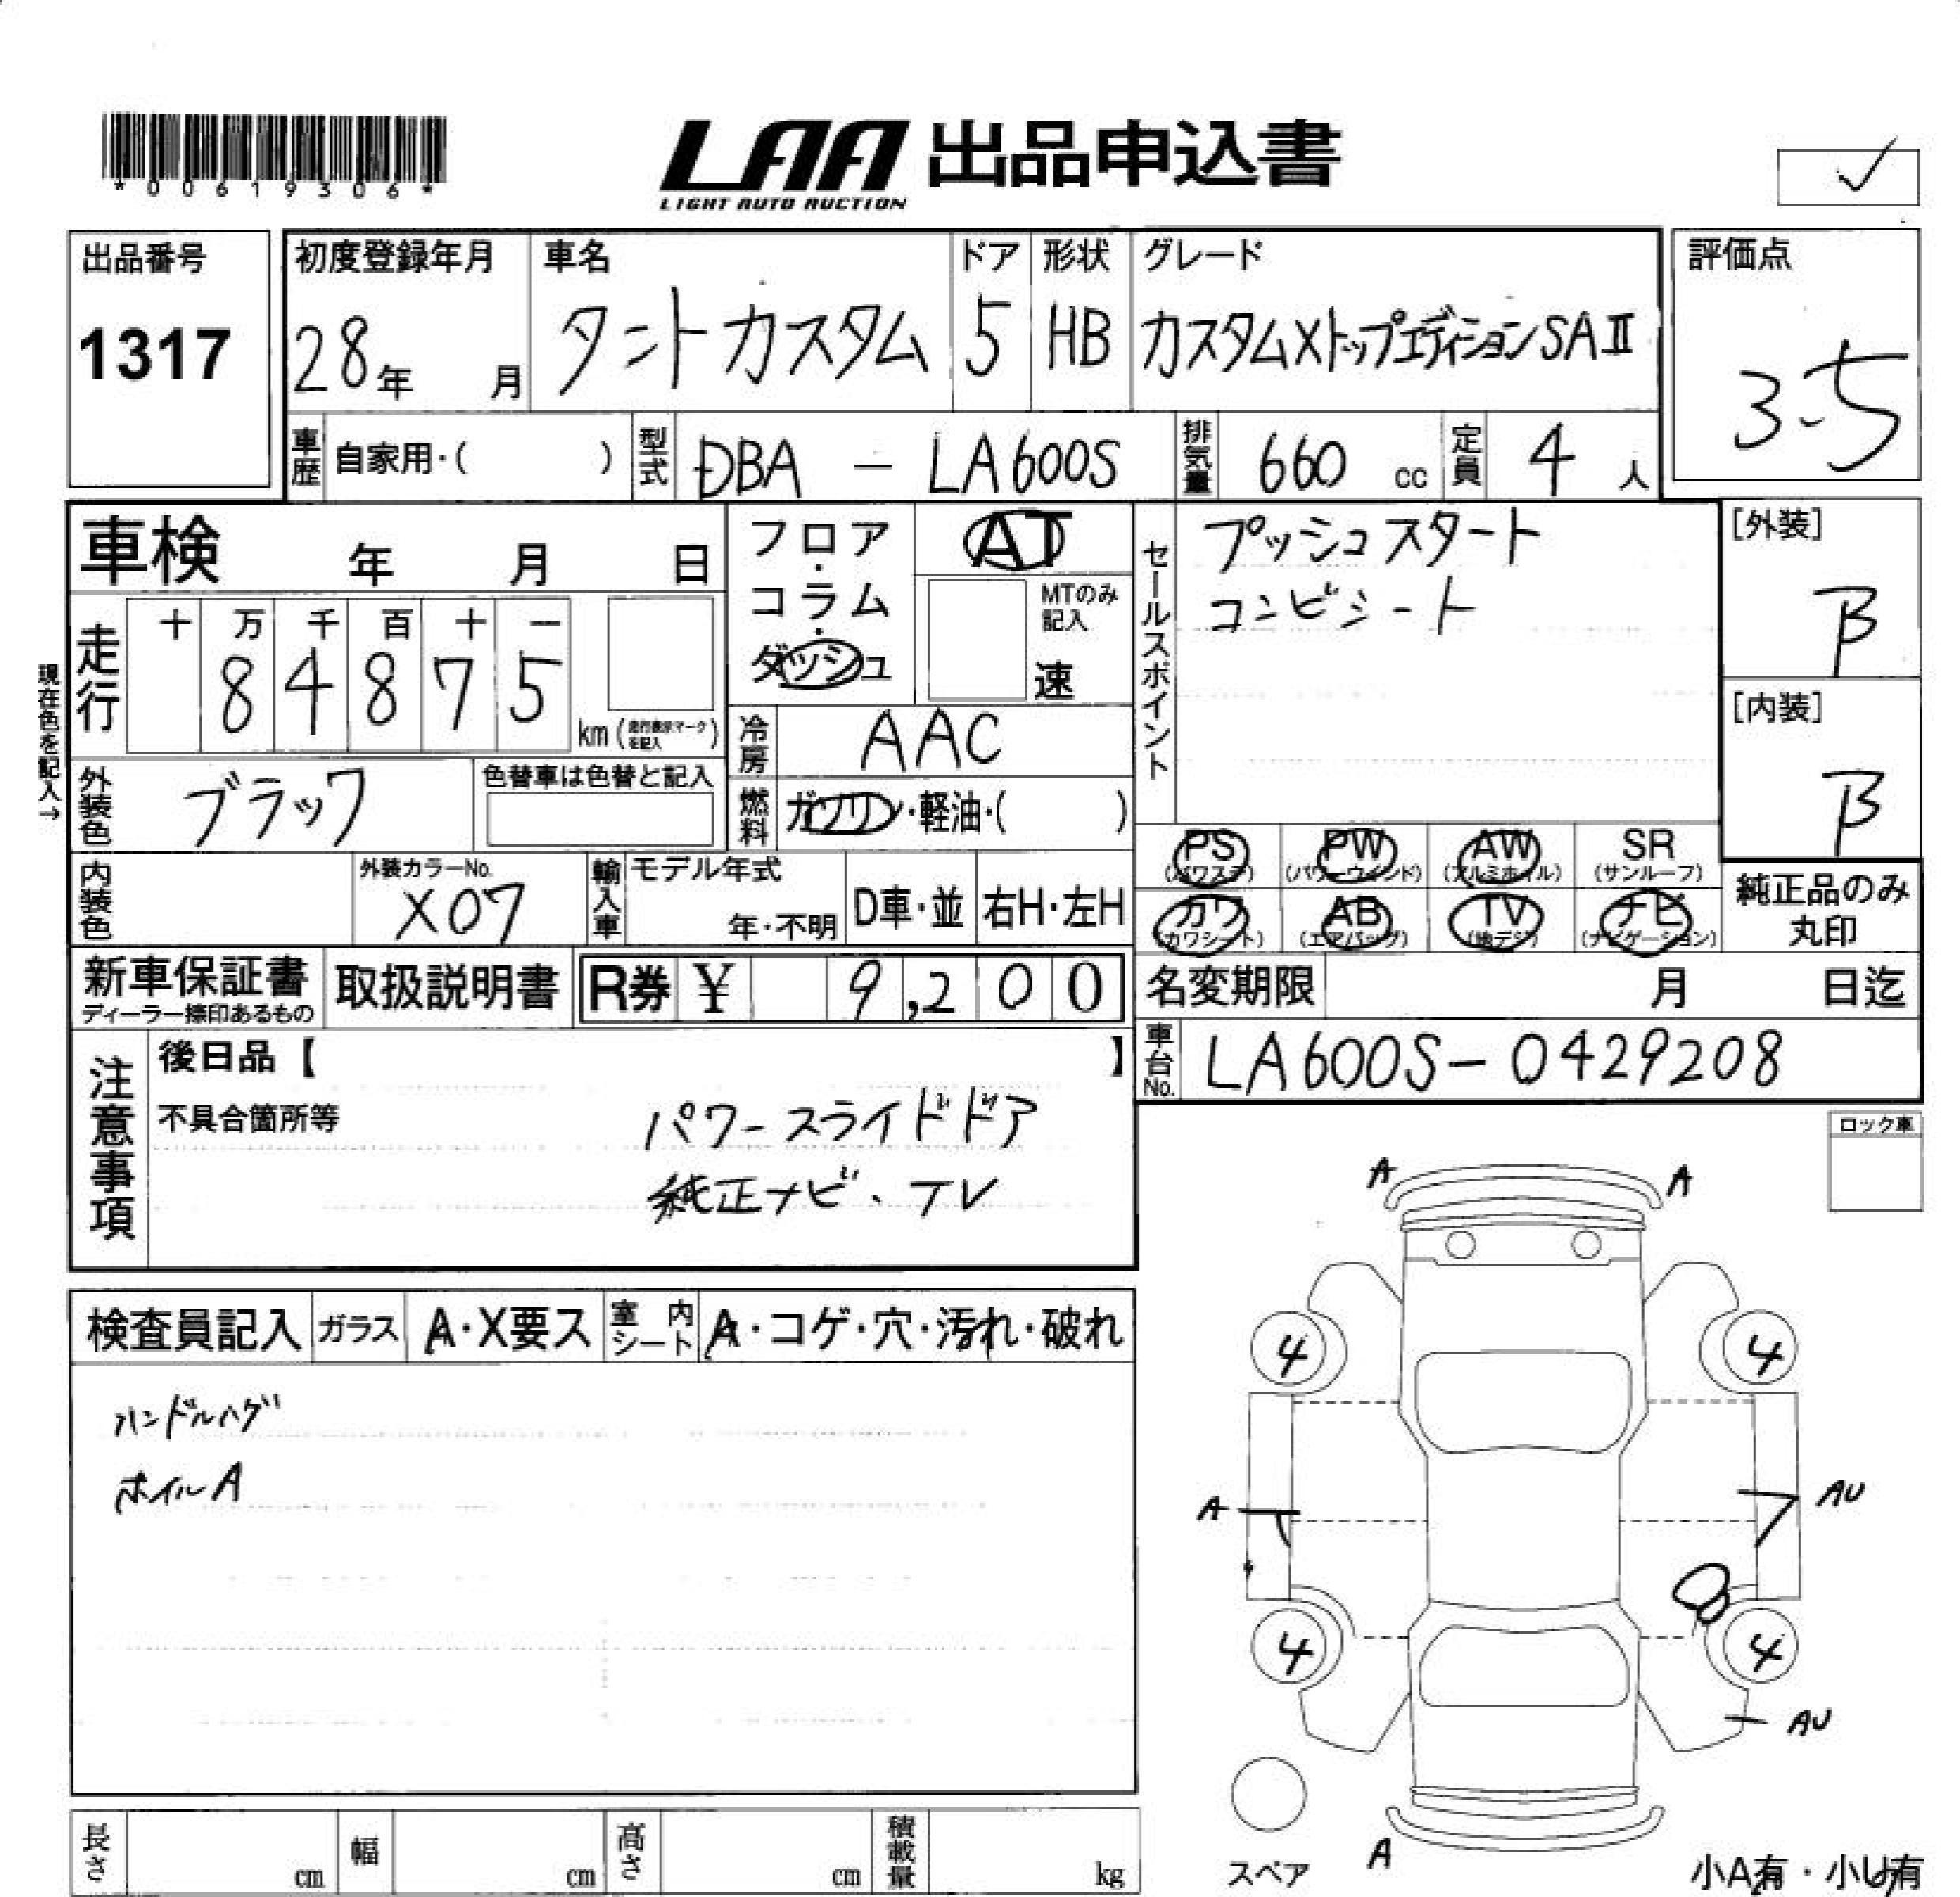 *00619306*
LAA 出品申込書
LIGHT AUTO AUCTION
出品番号
1317
初度登録年月
28年 月
車名
タントカスタム
ドア
5
形状
HB
グレード
カスタムXトップエディションSAⅡ
評価点
3.5
車歴 自家用・( )
型式 DBA - LA600S
排気量 660 cc
定員 4 人
車検 年 月 日
フロア・コラム・ダッシュ
AT
MTのみ記入
速
セールスポイント
プッシュスタート
コンビシート
[外装]
B
[内装]
B
現在色を記入→
走行
十 万 千 百 十 一
8 4 8 7 5
km (走行表示マークを記入)
冷房 AAC
外装色 ブラック
色替車は色替と記入
燃料 ガソリン・軽油・( )
内装色
外装カラーNo.
X07
輸入車
モデル年式
年・不明
D車・並
右H・左H
PS (パワステ)
PW (パワーウインド)
AW (アルミホイル)
SR (サンルーフ)
カワ (カワシート)
AB (エアバッグ)
TV (地デジ)
ナビ (ナビゲーション)
純正品のみ
丸印
新車保証書
ディーラー捺印あるもの
取扱説明書
R券 ¥ 9,200
名変期限 月 日迄
車台No. LA600S-0429208
注意事項
後日品【 】
不具合箇所等
パワースライドドア
純正ナビ・TV
ロック車
検査員記入
ガラス A・X要ス
室内シート A・コゲ・穴・汚れ・破れ
ハンドルハゲ
ホイルA
A A
4 4
A AU
4 4
AU
A
スペア
小A有・小U有
長さ cm
幅 cm
高さ cm
積載量 kg